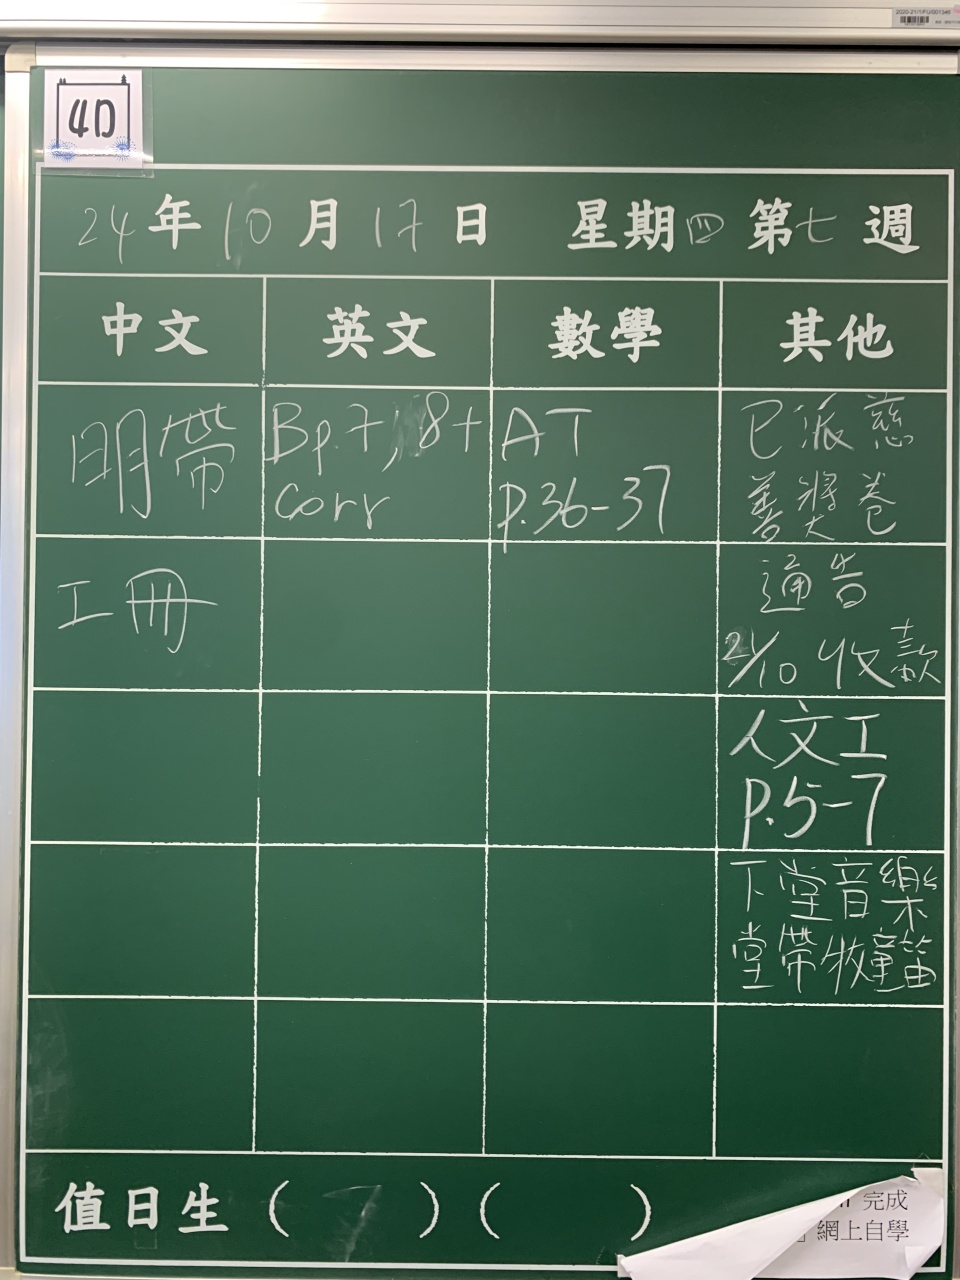 2020-21/1/FU/001346
4D
24年10月17日 星期四第七週
中文 英文 數學 其他
明帶
工冊
Bp.7, 8+
corr
AT
p.36-37
已派慈
善獎卷
通告
21/10 收款
人文工
p.5-7
下堂音樂
堂帶牧童笛
值日生 ( ) ( )
完成
」網上自學